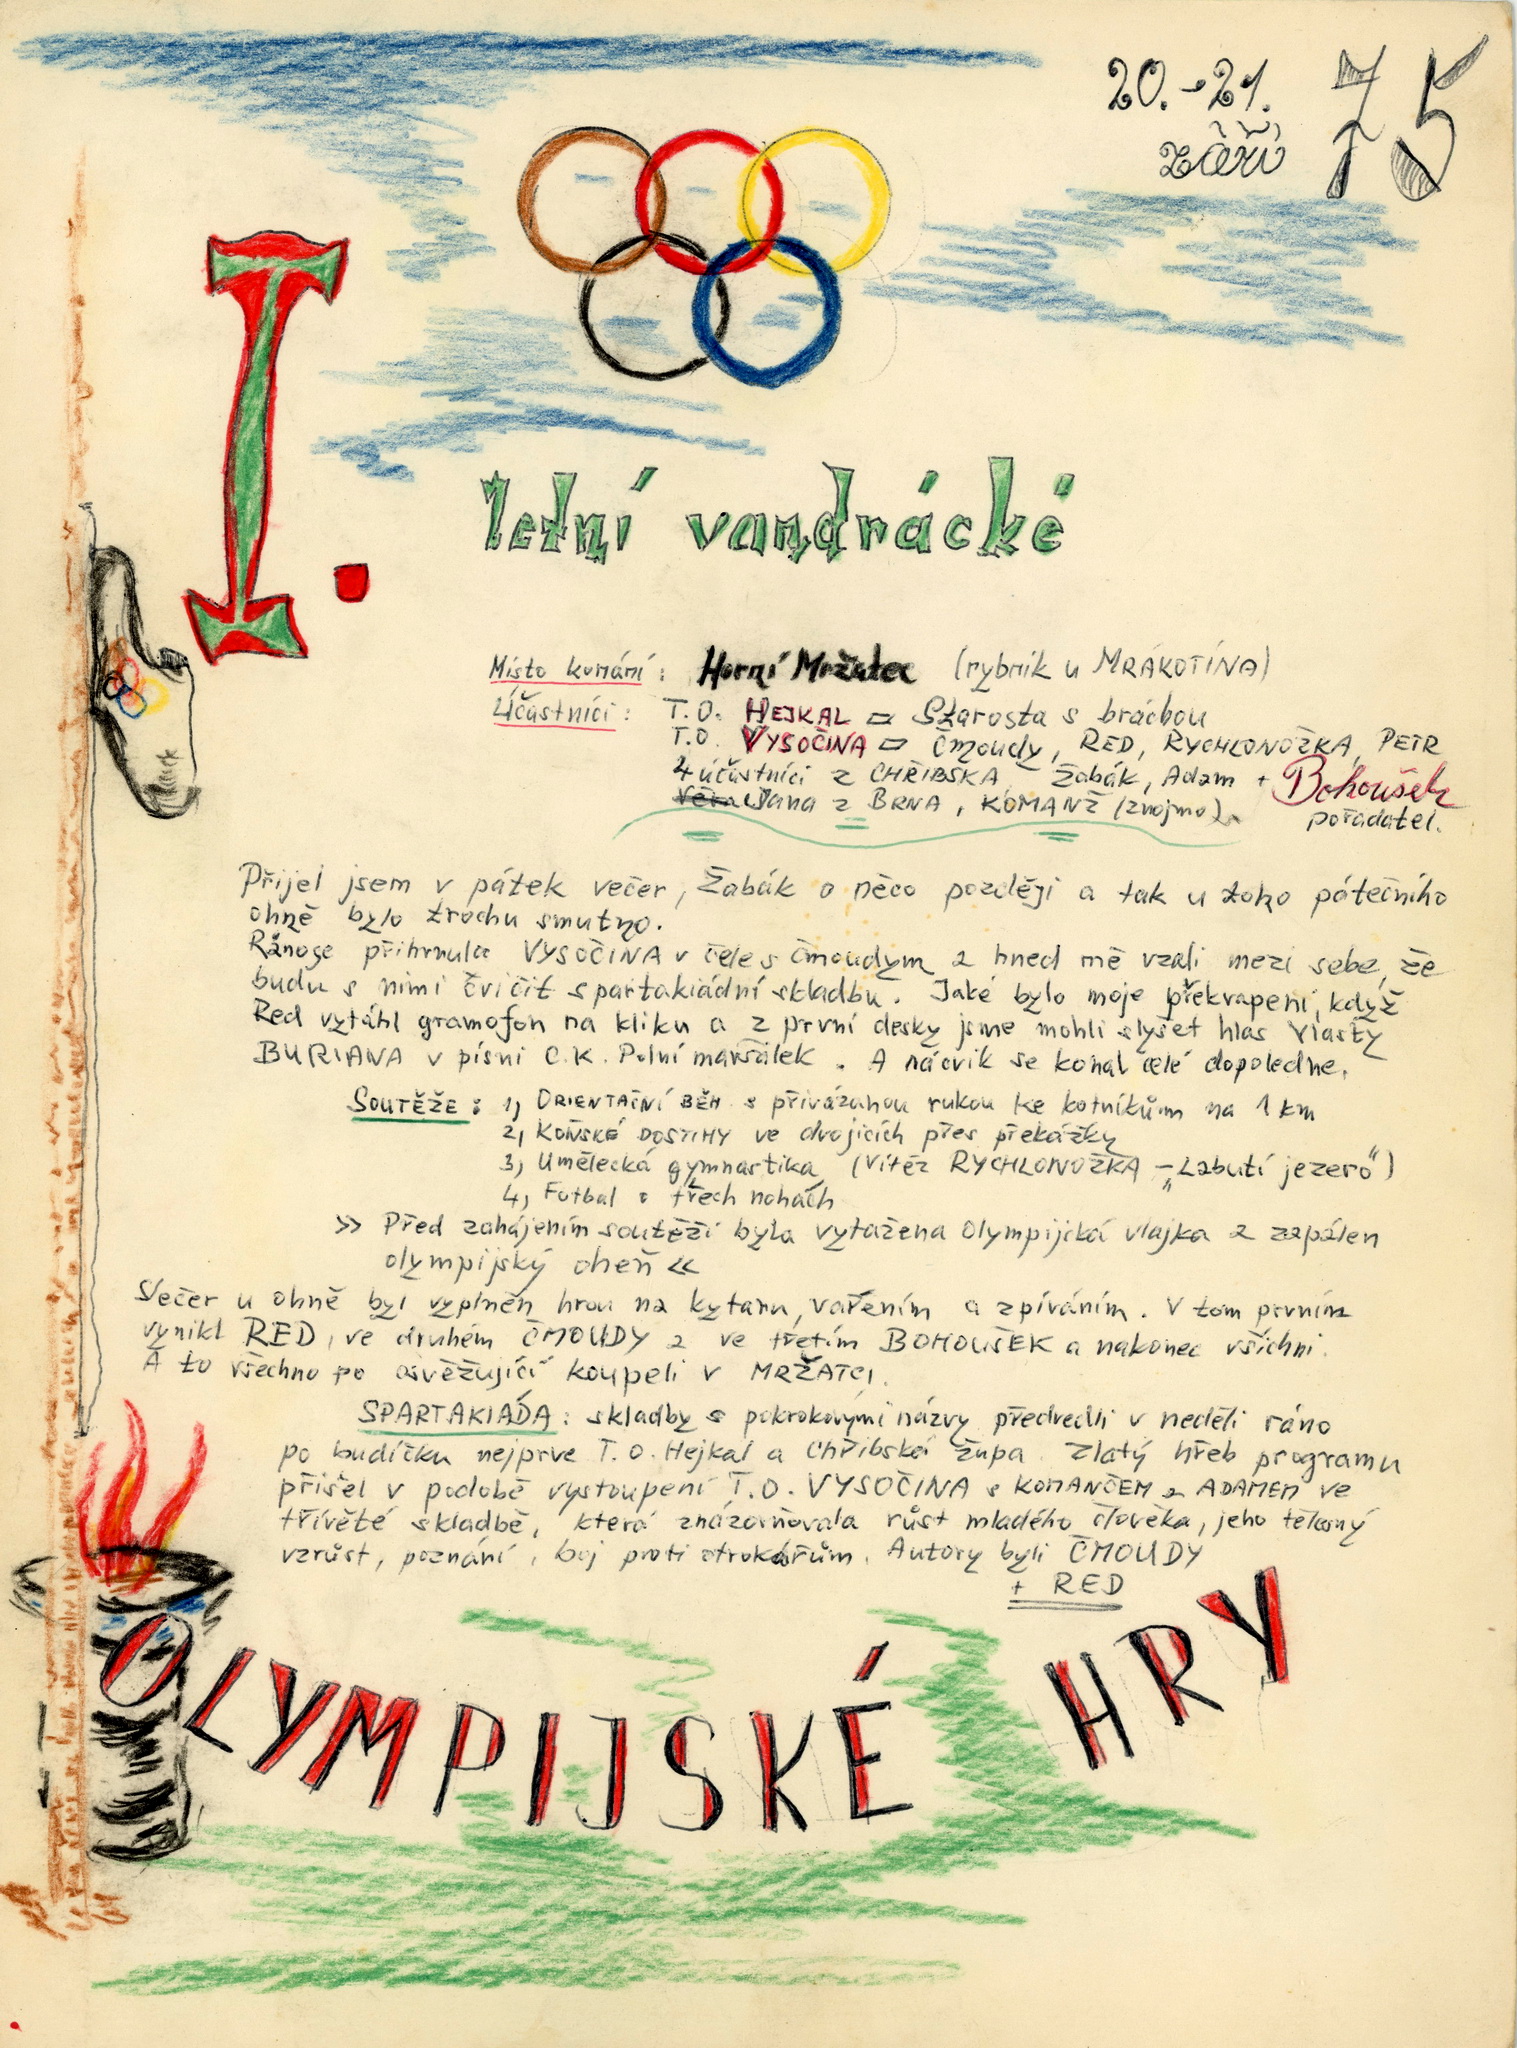 20.-21. 75
září
I.
letní vandrácké
Místo konání: Horní Mržatec (rybník u MRÁKOTÍNA)
Účastníci: T.O. HEJKAL = Starosta s bráchou
T.O. VYSOČINA = Čmoudy, RED, RYCHLONOŽKA, PETR
4 účastníci z CHŘIBSKA Žabák, Adam + Bohoušek
Věra Jana z BRNA, KOMANČ (Znojmo) pořadatel.
Přijel jsem v pátek večer, Žabák o něco později a tak u toho pátečního
ohně bylo trochu smutno.
Ráno se přihrnula VYSOČINA v čele s Čmoudym a hned mě vzali mezi sebe, že
budu s nimi cvičit spartakiádní skladbu. Jaké bylo moje překvapení, když
Red vytáhl gramofon na kliku a z první desky jsme mohli slyšet hlas Vlasty
BURIANA v písni C.K. Polní maršálek. A nácvik se konal celé dopoledne.
SOUTĚŽE: 1, ORIENTAČNÍ BĚH s přivázanou rukou ke kotníkům na 1 km
2, KOŇSKÉ DOSTIHY ve dvojicích přes překážky
3, Umělecká gymnastika (Vítěz RYCHLONOŽKA – „Labutí jezero")
4, Fotbal o třech nohách
» Před zahájením soutěží byla vytažena olympijská vlajka a zapálen
olympijský oheň «
Večer u ohně byl vyplněn hrou na kytaru, vařením a zpíváním. V tom prvním
vynikl RED, ve druhém ČMOUDY a ve třetím BOHOUŠEK a nakonec všichni.
A to všechno po osvěžující koupeli v MRŽATCI.
SPARTAKIÁDA: skladby s pokrokovými názvy předvedli v neděli ráno
po budíčku nejprve T.O. Hejkal a Chřibská župa. Zlatý hřeb programu
přišel v podobě vystoupení T.O. VYSOČINA s KOMANČEM a ADAMEM ve
třívěté skladbě, která znázorňovala růst mladého člověka, jeho tělesný
vzrůst, poznání, boj proti otrokářům. Autory byli ČMOUDY
+ RED
OLYMPIJSKÉ HRY